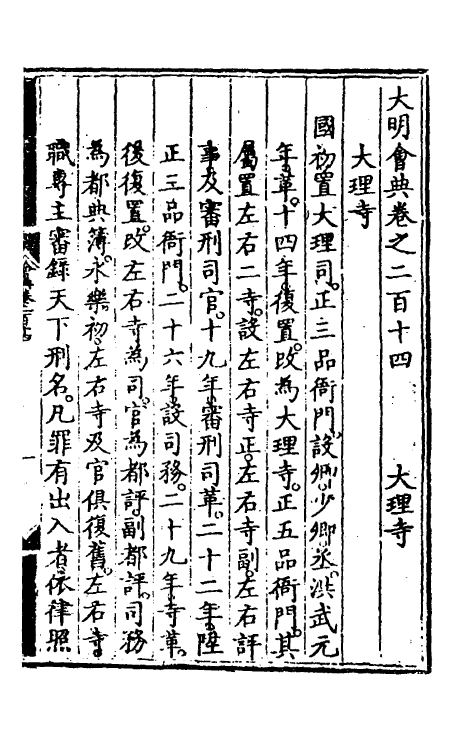 大明會典卷之二百十四 大理寺
大理寺
國初置大理司。正三品衙門。設卿少卿丞。洪武元
年革。十四年復置。改為大理寺。正五品衙門。其
屬置左右二寺。設左右寺正。左右寺副。左右評
事。及審刑司官。十九年。審刑司革。二十二年。陞
正三品衙門。二十六年。設司務。二十九年。寺革。
後復置。改左右寺為司。官為都評。副都評。司務
為都典簿。永樂初。左右寺及官俱復舊。左右寺
職專主審錄天下刑名。凡罪有出入者。依律照